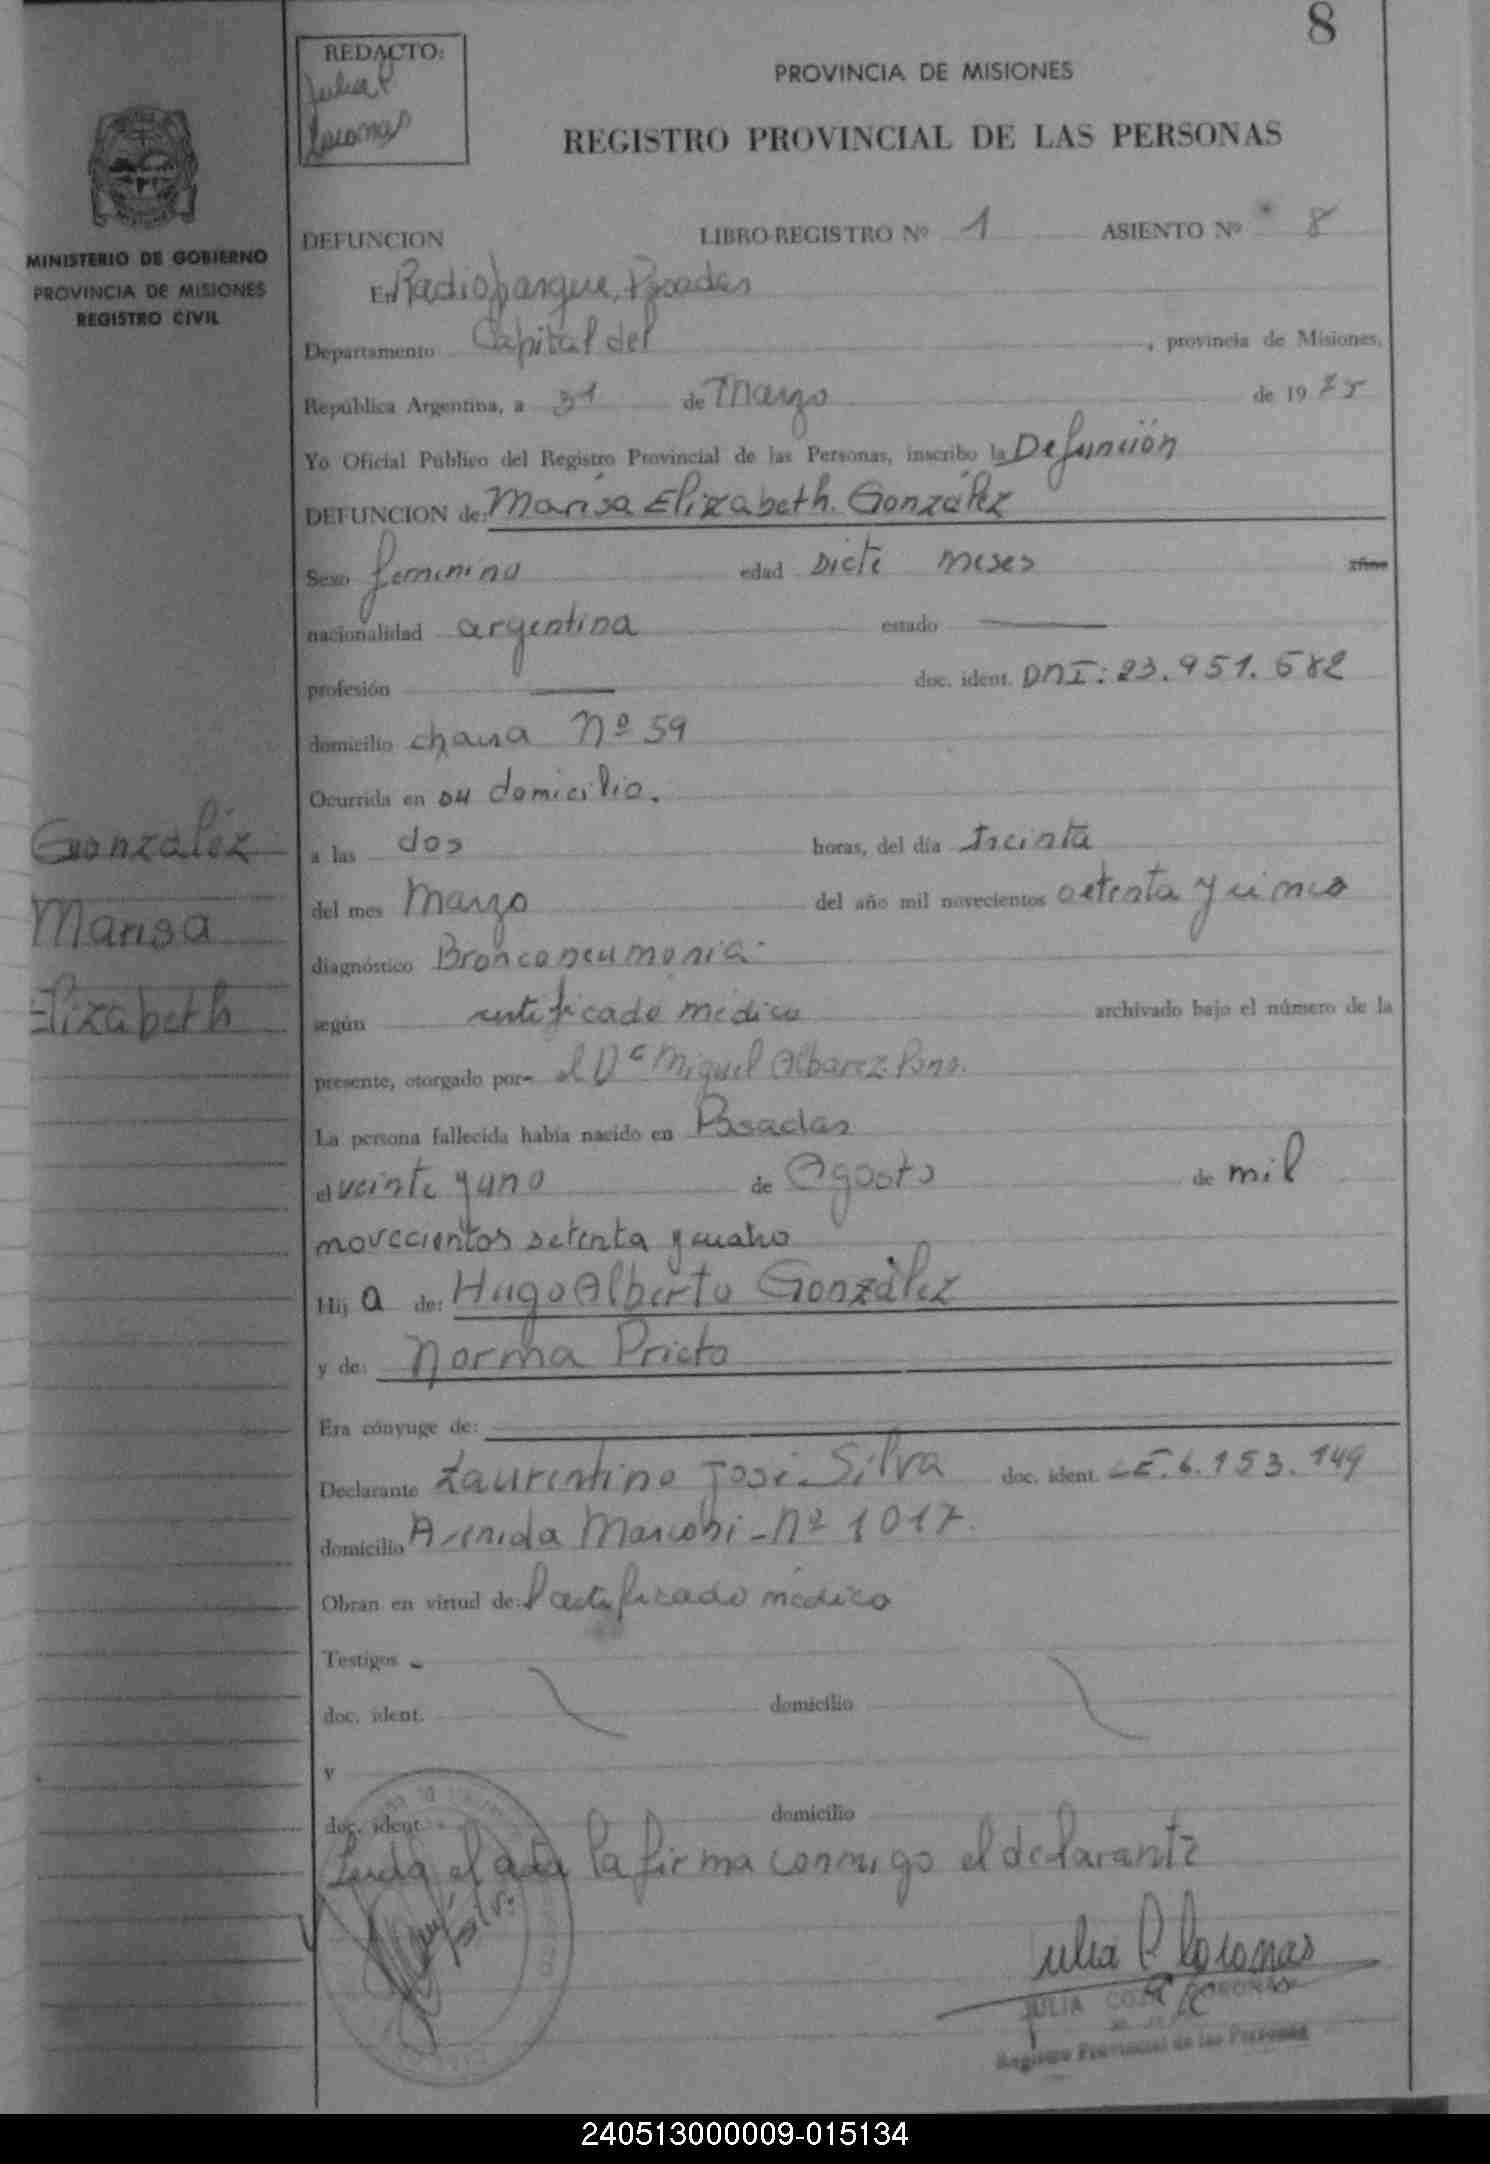 8
REDACTO:
Julia P
Coronas
PROVINCIA DE MISIONES
REGISTRO PROVINCIAL DE LAS PERSONAS
MINISTERIO DE GOBIERNO
PROVINCIA DE MISIONES
REGISTRO CIVIL
DEFUNCION LIBRO-REGISTRO Nº 1 ASIENTO Nº 8
En Radioparque, Posadas
Departamento Capital del , provincia de Misiones,
República Argentina, a 31 de Marzo de 1975
Yo Oficial Público del Registro Provincial de las Personas, inscribo la Defunción
DEFUNCION de: Marisa Elizabeth González
Sexo femenino edad siete meses años
nacionalidad argentina estado
profesión doc. ident. DNI: 23.951.582
domicilio Nº 59
Ocurrida en su domicilio.
a las dos horas, del día treinta
del mes Marzo del año mil novecientos setenta y cinco
diagnóstico Bronconeumonia
según certificado médico archivado bajo el número de la
presente, otorgado por- el Dr Miguel Albarez
La persona fallecida había nacido en Posadas
el veinte y uno de Agosto de mil
novecientos setenta y cuatro
Hij a de: Hugo Alberto González
y de: Norma Prieto
Era cónyuge de:
Declarante Laurentino José Silva doc. ident. LE. 6.153.149
domicilio Avenida Marconi - Nº 1017.
Obran en virtud de: certificado médico
Testigos -
doc. ident. domicilio
y
doc. ident. domicilio
Leída el acta la firma conmigo el declarante
González
Marisa
Elizabeth
Silva
Julia P Coronas
JULIA CORONAS
Registro Provincial de las Personas
240513000009-015134